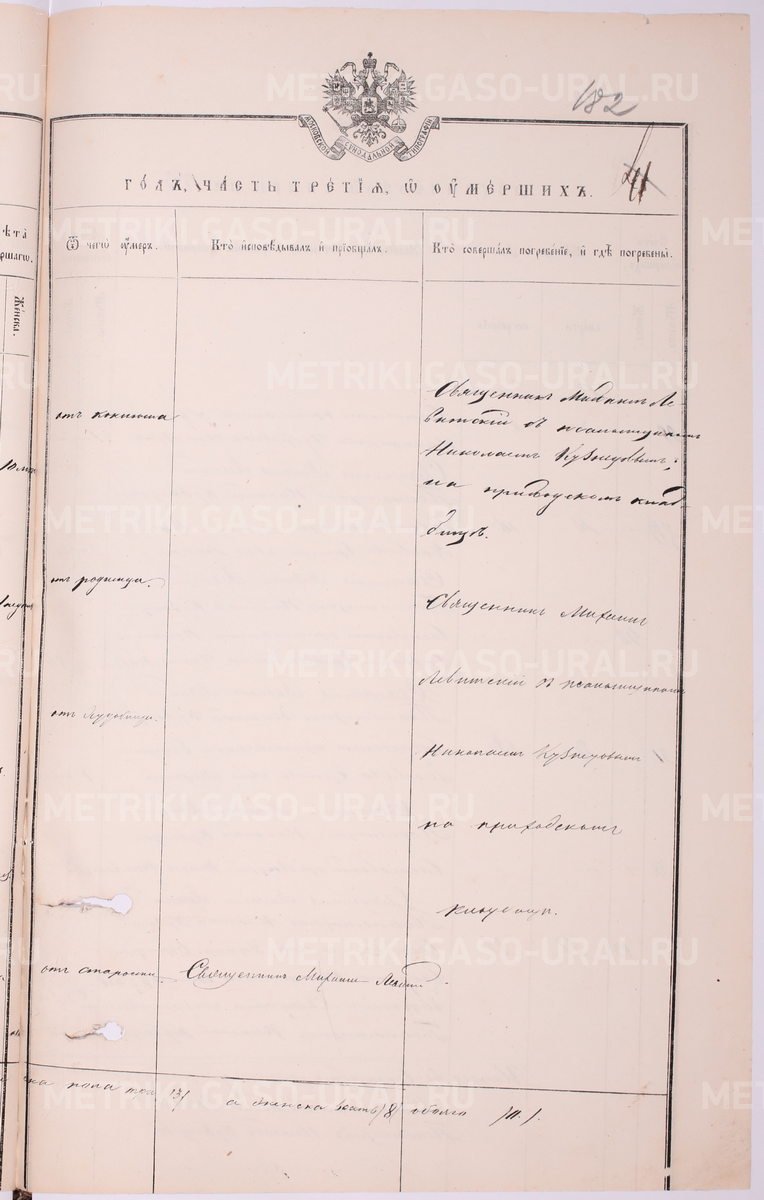 182
МОСКОВСКОЙ СѴНОДАЛЬНОЙ ТИПОГРАФІИ
41
ГО́ДЪ, ЧА́СТЬ ТРЕ́ТІѦ, Ѡ҆ ОУ҆МЕ́РШИХЪ.
Ѿ чегѡ̀ оу҆́меръ.
Кто̀ и҆сповѣ́дывалъ и҆ прїѡбща́лъ.
Кто̀ соверша́лъ погребе́нїе, и҆ гдѣ̀ погребены̀.
Же́нска.
Священникъ Михаилъ Ле
витскій съ псаломщикомъ
Николаемъ Кузнецовымъ;
на приходскомъ клад-
бищѣ.
отъ родимца.
Священникъ Михаилъ
Левитскій съ псаломщикомъ
Николаемъ Кузнецовымъ
на приходскомъ
кладбищѣ.
отъ старости.
Священникъ Михаилъ
ка пола три /3/
а женска восемь /8/ обоего /11/.
METRIKI.GASO-URAL.RU